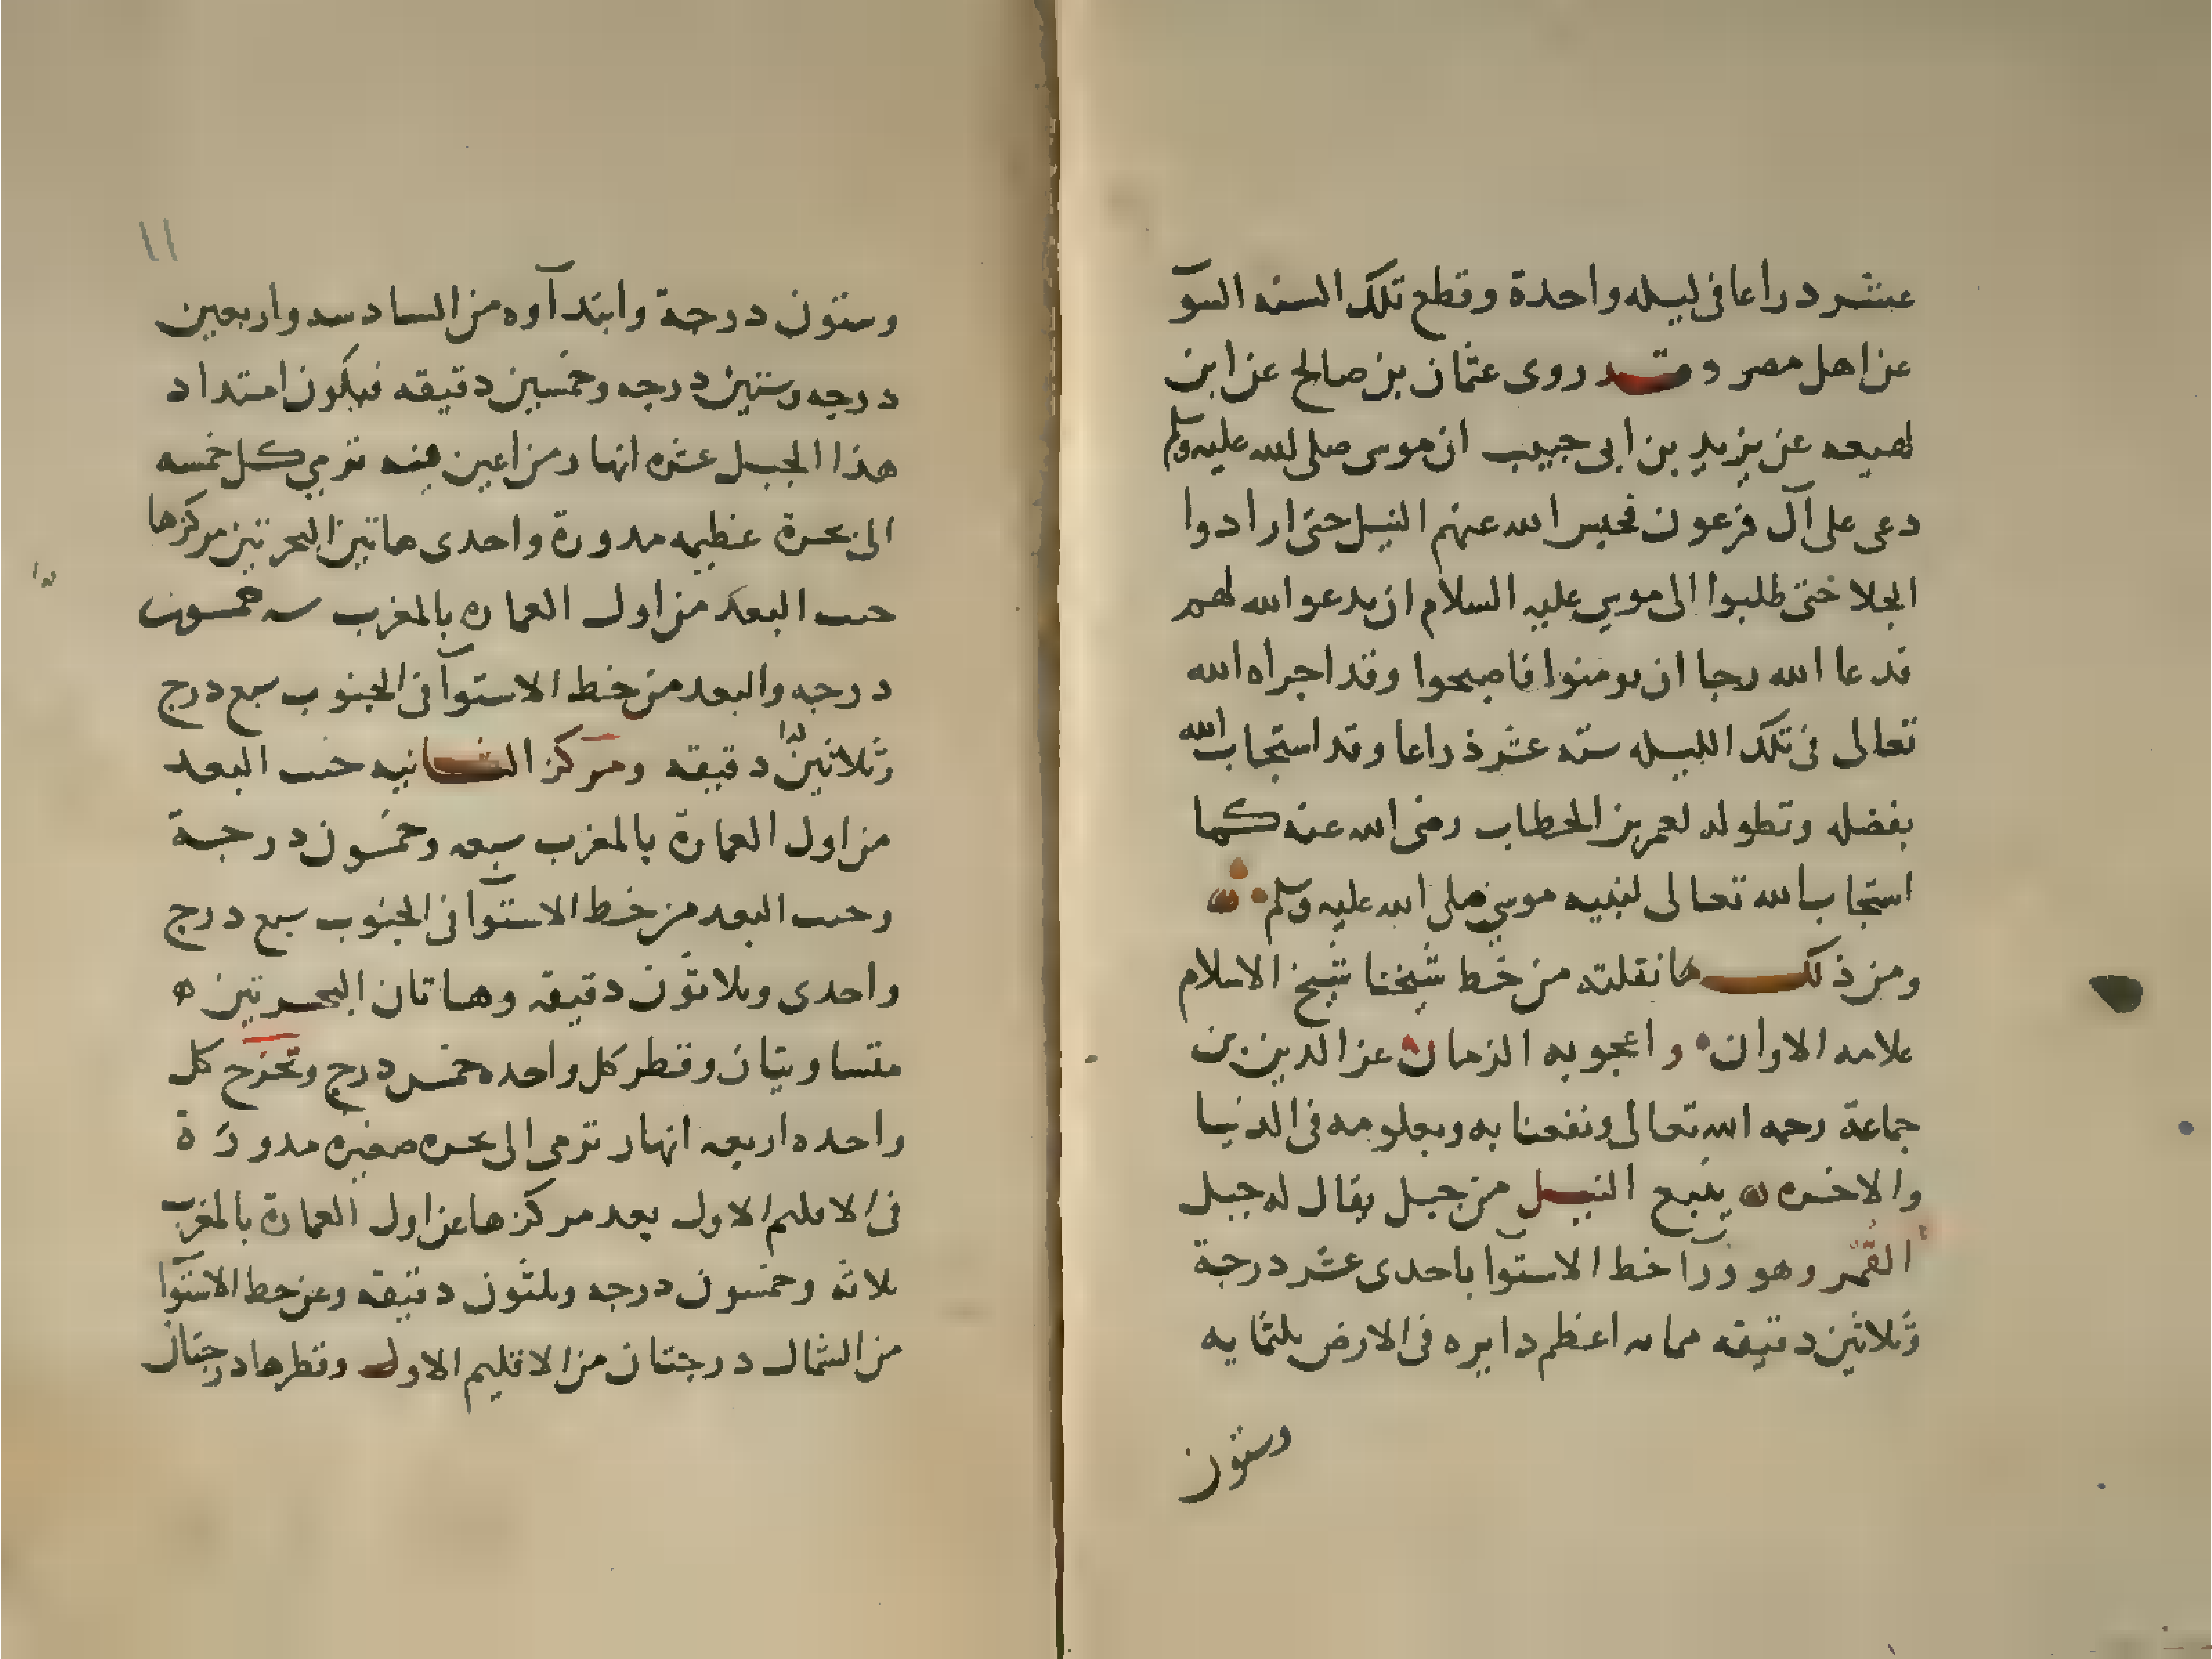 عشر دراعا فى ليله واحدة وقطع تلك السنه السوٓ
عن اهل مصر وقد روى عثمان بن صالح عن ابن
لهيعه عن يزيد بن ابى حبيب ان موسى صلى الله عليه وسلم
دعى على آل فرعون فحبس الله عنهم النيل حتى ارادوا
الجلا حتى طلبوا الى موسى عليه السلام ان يدعوا الله لهم
فدعا الله رجا ان يومنوا فاصبحوا وقد اجراه الله
تعالى فى تلك الليله سته عشر ذراعا وقد استجاب الله
بفضله وتطوله لعمر بن الخطاب رضى الله عنه كما
استجاب الله تعالى لنبيه موسى صلى الله عليه وسلم
ومن ذلك ما نقلته من خط شيخنا شيخ الاسلام
علامه الاوان واعجوبه الزمان عز الدين بن
جماعة رحمه الله تعالى ونفعنا به وبعلومه فى الدنيا
والاخره ينبع النيل من جبل يقال له جبل
القُمْر وهو ورآ خط الاستوا باحدى عشر درجة
وثلاثين دقيقه مما به اعظم دايره فى الارض بثلثمايه
وستون
١١
وستون درجة وابتدآوه من السادسه واربعين
درجه وستين درجه وخمسين دقيقه فيكون امتداد
هذا الجبل عشره انهار من اعين فيه ترمي كل خمسه
الى بحرة عظيمه مدورة واحدى هاتين البحرتين مركزها
حيث البعد من اول العماره بالمغرب خمسون
درجه والبعد من خط الاستوآ فى الجنوب سبع درج
وثلاثين دقيقه ومركز الثانيه حيث البعد
من اول العمارة بالمغرب سبعه وخمسون درجة
وحيث البعد من خط الاستوآ فى الجنوب سبع درج
واحدى وثلاثون دقيقه وهاتان البحرتين
متساويتان وقطر كل واحده خمس درج وتخرج كل
واحده اربعه انهار ترمى الى بحره صغيره مدورة
فى الاقليم الاول بعد مركزها عن اول العمارة بالمغرب
ثلاثه وخمسون درجه وثلثون دقيقه وعن خط الاستوآ
من الشمال درجتان من الاقليم الاول وقطرها درجتان